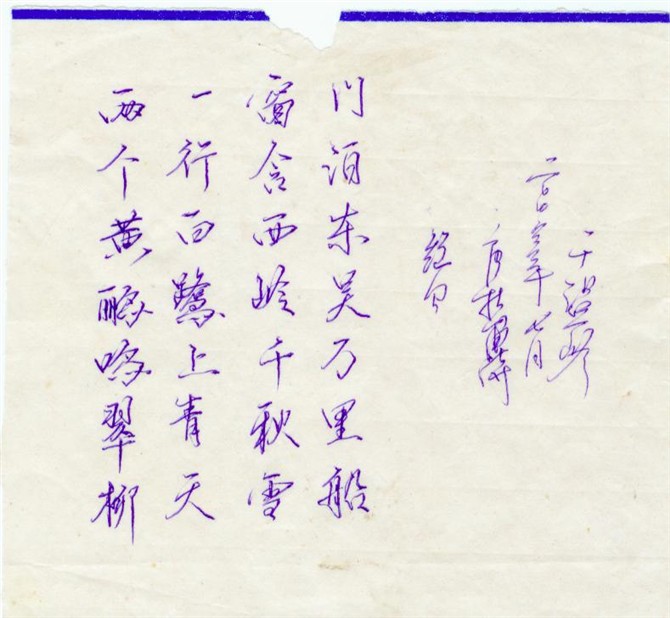 两个黄鹂鸣翠柳
一行白鹭上青天
窗含西岭千秋雪
门泊东吴万里船
绝句
杜甫诗
年七月